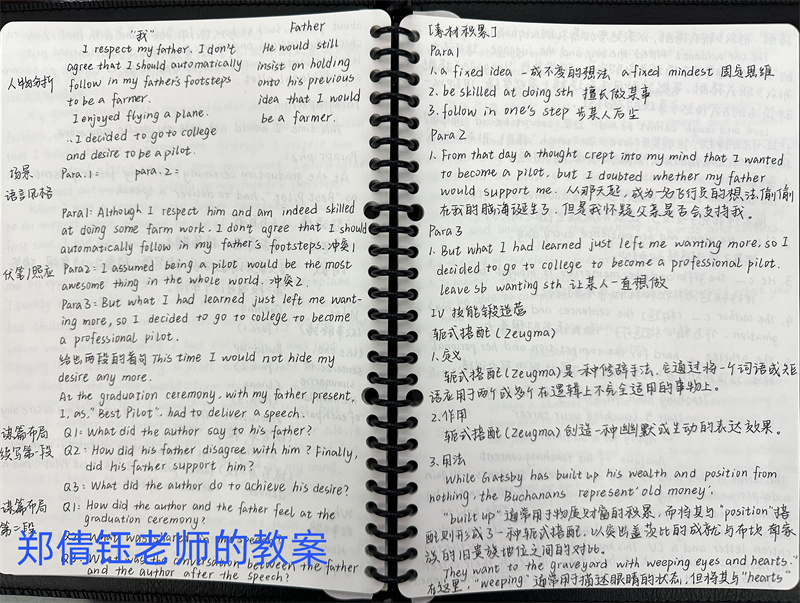 "我"
Father
人物分析
I respect my father. I don't
agree that I should automatically
follow in my father's footsteps
to be a farmer.
I enjoyed flying a plane.
∴ I decided to go to college
and desire to be a pilot.
He would still
insist on holding
onto his previous
idea that I would
be a farmer.
场景
Para.1: para.2:
语言风格
Para1: Although I respect him and am indeed skilled
at doing some farm work. I don't agree that I should
automatically follow in my father's footsteps. 冲突1
伏笔/照应
Para2: I assumed being a pilot would be the most
awesome thing in the whole world. 冲突2.
Para3: But what I had learned just left me want-
ing more, so I decided to go to college to become
a professional pilot.
给出两段的首句 This time I would not hide my
desire any more.
At the graduation ceremony, with my father present,
I, as "Best Pilot", had to deliver a speech.
谋篇布局
续写第一段
Q1: What did the author say to his father?
Q2: How did his father disagree with him? Finally,
did his father support him?
Q3: What did the author do to achieve his desire?
谋篇布局
第二段
Q1: How did the author and the father feel at the
graduation ceremony?
the conversation between the father
and the author after the speech?
郑倩钰老师的教案
[素材积累]
Para1
1. a fixed idea 一成不变的想法 a fixed mindest 固定思维
2. be skilled at doing sth 擅长做某事
3. follow in one's step 步某人后尘
Para2
1. From that day a thought crept into my mind that I wanted
to become a pilot. but I doubted whether my father
would support me. 从那天起,成为一名飞行员的想法偷偷
在我的脑海诞生了,但是我怀疑父亲是否会支持我。
Para3
1. But what I had learned just left me wanting more, so I
decided to go to college to become a professional pilot.
leave sb wanting sth 让某人一直想做
IV 技能锻造营
轭式搭配(Zeugma)
1.定义
轭式搭配(Zeugma)是一种修辞手法,会通过将一个词语或短
语应用于两个或多个在逻辑上不完全适用的事物上。
2.作用
轭式搭配(Zeugma)创造一种幽默或生动的表达效果。
3.用法
While Gatsby has built up his wealth and position from
nothing, the Buchanans represent 'old money'.
"built up"通常用于物质财富的积累,而将其与"position"搭
配则形成了一种轭式搭配,以突出盖茨比的成就与布坎南家
族的旧贵族地位之间的对比。
They want to the graveyard with weeping eyes and hearts."
在这里,"weeping"通常用于描述眼睛的状态,但将其与"hearts"